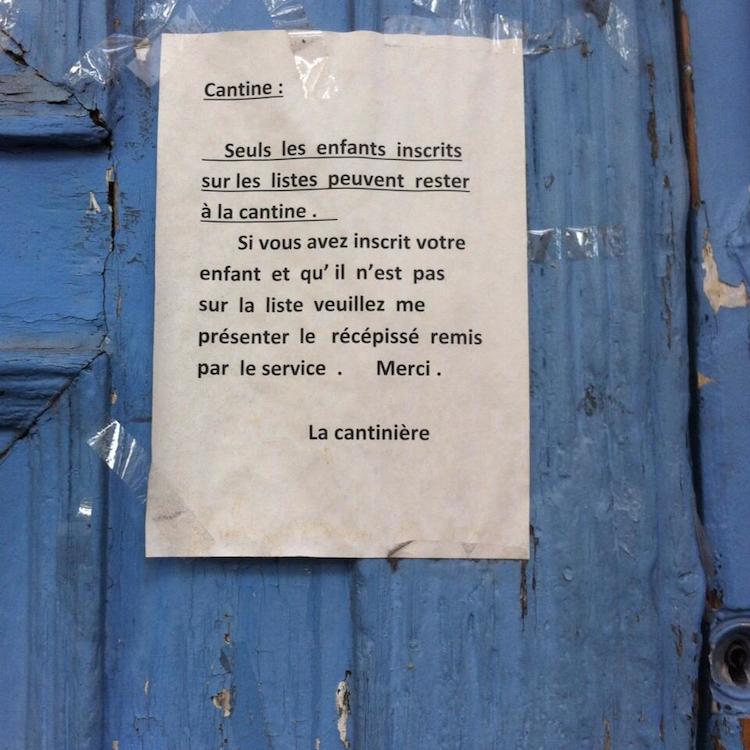 Cantine :
Seuls les enfants inscrits
sur les listes peuvent rester
à la cantine .
Si vous avez inscrit votre
enfant et qu' il n'est pas
sur la liste veuillez me
présenter le récépissé remis
par le service . Merci .
La cantinière